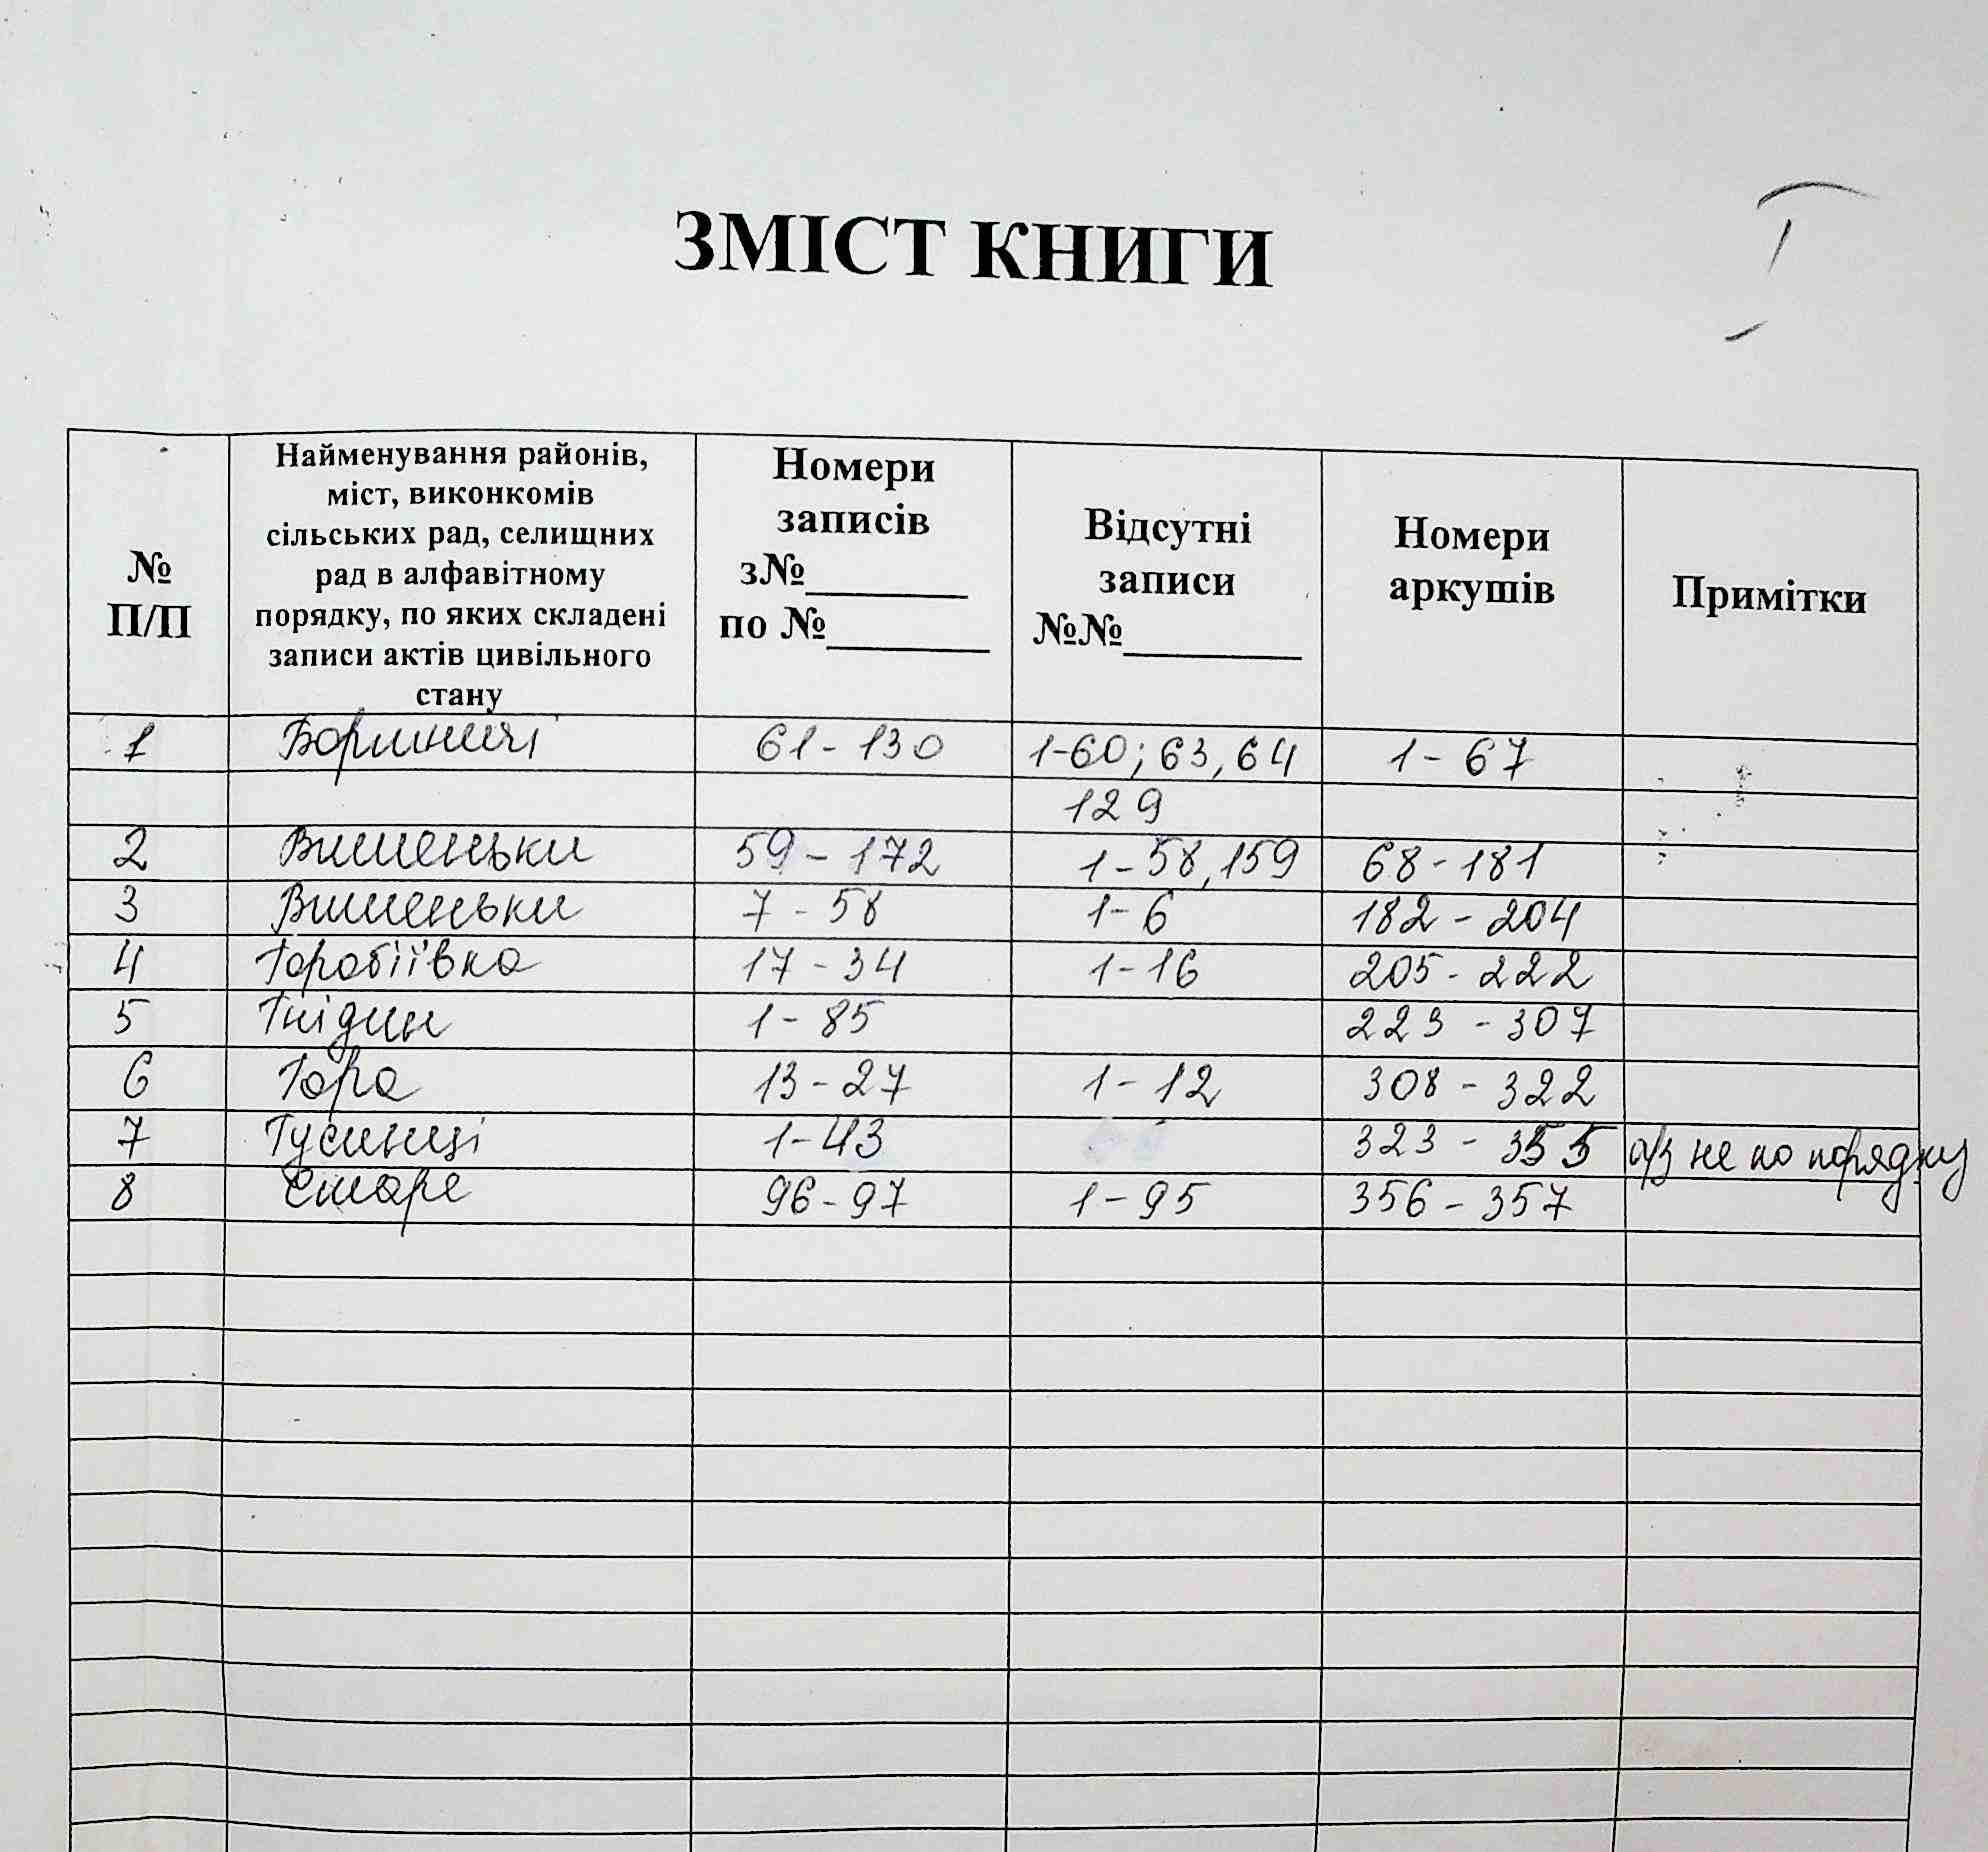 ЗМІСТ КНИГИ
№ П/П
Найменування районів,
міст, виконкомів
сільських рад, селищних
рад в алфавітному
порядку, по яких складені
записи актів цивільного
стану
Номери
записів
з№________
по №________
Відсутні
записи
№№________
Номери
аркушів
Примітки
1 Бориничі 61-130 1-60; 63, 64 1-67
129
2 Вишеньки 59-172 1-58, 159 68-181
3 Вишеньки 7-58 1-6 182-204
4 Горобіївка 17-34 1-16 205-222
5 Гнідин 1-85 223-307
6 Гора 13-27 1-12 308-322
7 Гусинці 1-43 323-355 а/з не по порядку
8 Старе 96-97 1-95 356-357